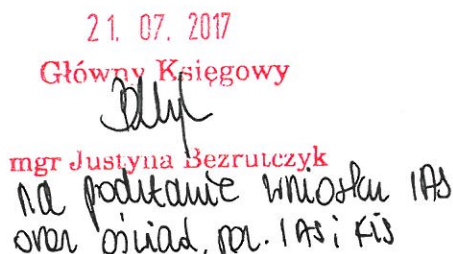 21. 07. 2017
Główny Księgowy
mgr Justyna Bezrutczyk
na podstawie wniosku IAS
oraz oświad. IAS i KIS